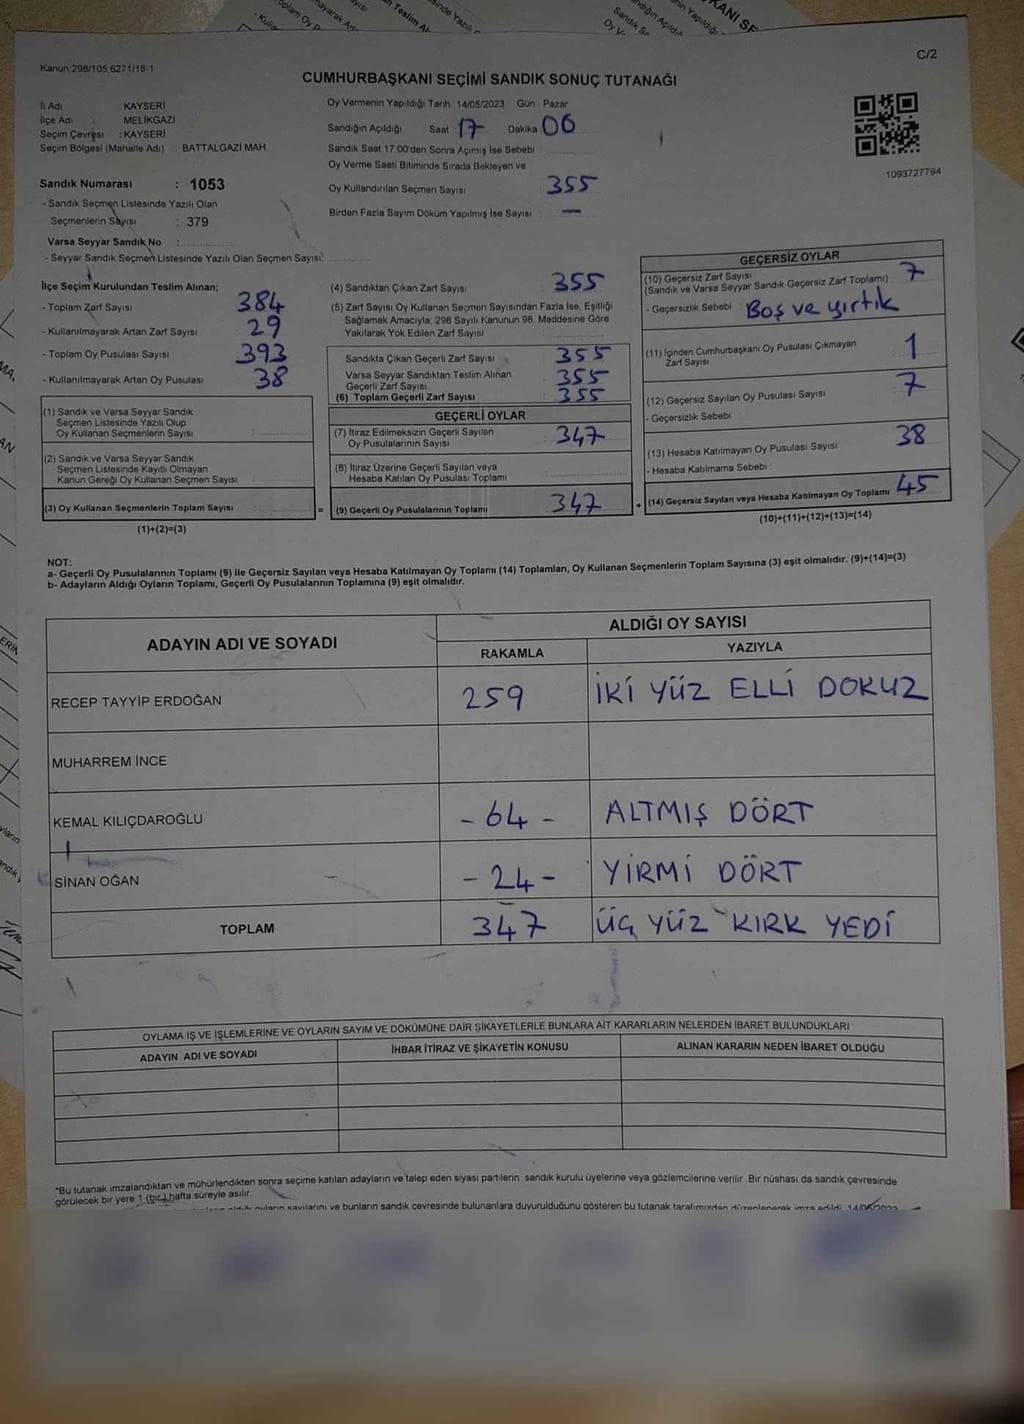 C/2
Kanun:298/105,6271/18-1
CUMHURBAŞKANI SEÇİMİ SANDIK SONUÇ TUTANAĞI
İl Adı : KAYSERİ
İlçe Adı MELİKGAZİ
Seçim Çevresi : KAYSERİ
Seçim Bölgesi (Mahalle Adı) BATTALGAZİ MAH.
Oy Vermenin Yapıldığı Tarih 14/05/2023 Gün : Pazar
Sandığın Açıldığı Saat 17 Dakika 06
Sandık Saat 17:00'den Sonra Açımış İse Sebebi
Oy Verme Saati Bitiminde Sırada Bekleyen ve
Oy Kullandırılan Seçmen Sayısı 355
Birden Fazla Sayım Döküm Yapılmış İse Sayısı : —
1093727794
Sandık Numarası : 1053
- Sandık Seçmen Listesinde Yazılı Olan
Seçmenlerin Sayısı : 379
Varsa Seyyar Sandık No :
- Seyyar Sandık Seçmen Listesinde Yazılı Olan Seçmen Sayısı:
İlçe Seçim Kurulundan Teslim Alınan;
- Toplam Zarf Sayısı 384
- Kullanılmayarak Artan Zarf Sayısı 29
- Toplam Oy Pusulası Sayısı 393
- Kullanılmayarak Artan Oy Pusulası 38
(1) Sandık ve Varsa Seyyar Sandık
Seçmen Listesinde Yazılı Olup
Oy Kullanan Seçmenlerin Sayısı :
(2) Sandık ve Varsa Seyyar Sandık
Seçmen Listesinde Kayıtlı Olmayan
Kanun Gereği Oy Kullanan Seçmen Sayısı :
(3) Oy Kullanan Seçmenlerin Toplam Sayısı : =
(1)+(2)=(3)
(4) Sandıktan Çıkan Zarf Sayısı : 355
(5) Zarf Sayısı Oy Kullanan Seçmen Sayısından Fazla İse, Eşitliği
Sağlamak Amacıyla; 298 Sayılı Kanunun 98. Maddesine Göre
Yakılarak Yok Edilen Zarf Sayısı
Sandıkta Çıkan Geçerli Zarf Sayısı : 355
Varsa Seyyar Sandıktan Teslim Alınan
Geçerli Zarf Sayısı 355
(6) Toplam Geçerli Zarf Sayısı 355
GEÇERLİ OYLAR
(7) İtiraz Edilmeksizin Geçerli Sayılan
Oy Pusulalarının Sayısı 347
(8) İtiraz Üzerine Geçerli Sayılan veya
Hesaba Katılan Oy Pusulası Toplamı
(9) Geçerli Oy Pusulalarının Toplamı : 347 +
GEÇERSİZ OYLAR
(10) Geçersiz Zarf Sayısı 7
(Sandık ve Varsa Seyyar Sandık Geçersiz Zarf Toplamı)
- Geçersizlik Sebebi : Boş ve yırtık
(11) İçinden Cumhurbaşkanı Oy Pusulası Çıkmayan 1
Zarf Sayısı
(12) Geçersiz Sayılan Oy Pusulası Sayısı 7
- Geçersizlik Sebebi :
(13) Hesaba Katılmayan Oy Pusulası Sayısı 38
- Hesaba Katılmama Sebebi :
(14) Geçersiz Sayılan veya Hesaba Katılmayan Oy Toplamı 45
(10)+(11)+(12)+(13)=(14)
NOT:
a- Geçerli Oy Pusulalarının Toplamı (9) ile Geçersiz Sayılan veya Hesaba Katılmayan Oy Toplamı (14) Toplamları, Oy Kullanan Seçmenlerin Toplam Sayısına (3) eşit olmalıdır. (9)+(14)=(3)
b- Adayların Aldığı Oyların Toplamı, Geçerli Oy Pusulalarının Toplamına (9) eşit olmalıdır.
ADAYIN ADI VE SOYADI
ALDIĞI OY SAYISI
RAKAMLA YAZIYLA
RECEP TAYYİP ERDOĞAN 259 İKİ YÜZ ELLİ DOKUZ
MUHARREM İNCE
KEMAL KILIÇDAROĞLU - 64 - ALTMIŞ DÖRT
SİNAN OĞAN - 24 - YİRMİ DÖRT
TOPLAM 347 ÜÇ YÜZ KIRK YEDİ
OYLAMA İŞ VE İŞLEMLERİNE VE OYLARIN SAYIM VE DÖKÜMÜNE DAİR ŞİKAYETLERLE BUNLARA AİT KARARLARIN NELERDEN İBARET BULUNDUKLARI
ADAYIN ADI VE SOYADI İHBAR İTİRAZ VE ŞİKAYETİN KONUSU ALINAN KARARIN NEDEN İBARET OLDUĞU
*Bu tutanak imzalandıktan ve mühürlendikten sonra seçime katılan adayların ve talep eden siyasi partilerin sandık kurulu üyelerine veya gözlemcilerine verilir. Bir nüshası da sandık çevresinde
görülecek bir yere 1 (bir) hafta süreyle asılır.
aldığı oyların sayılarını ve bunların sandık çevresinde bulunanlara duyurulduğunu gösteren bu tutanak tarafımızdan düzenlenerek imza edildi. 14/05/2023